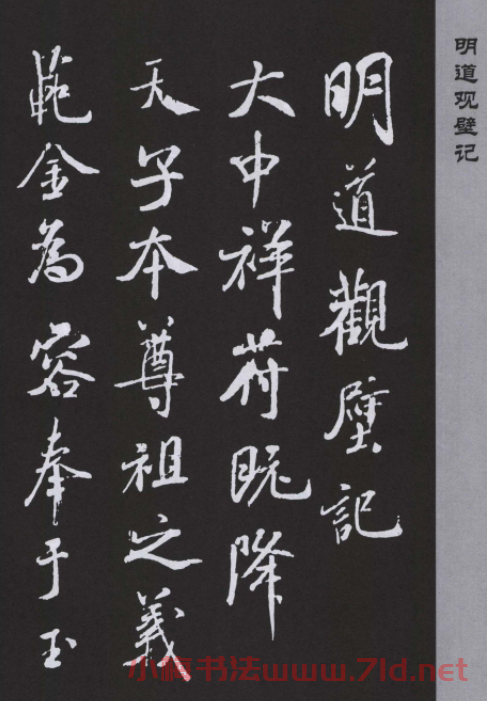 明道观壁记
明道觀壁記
大中祥符既降
天子本尊祖之義
範金為容奉于玉
小楷书法www.7ld.net